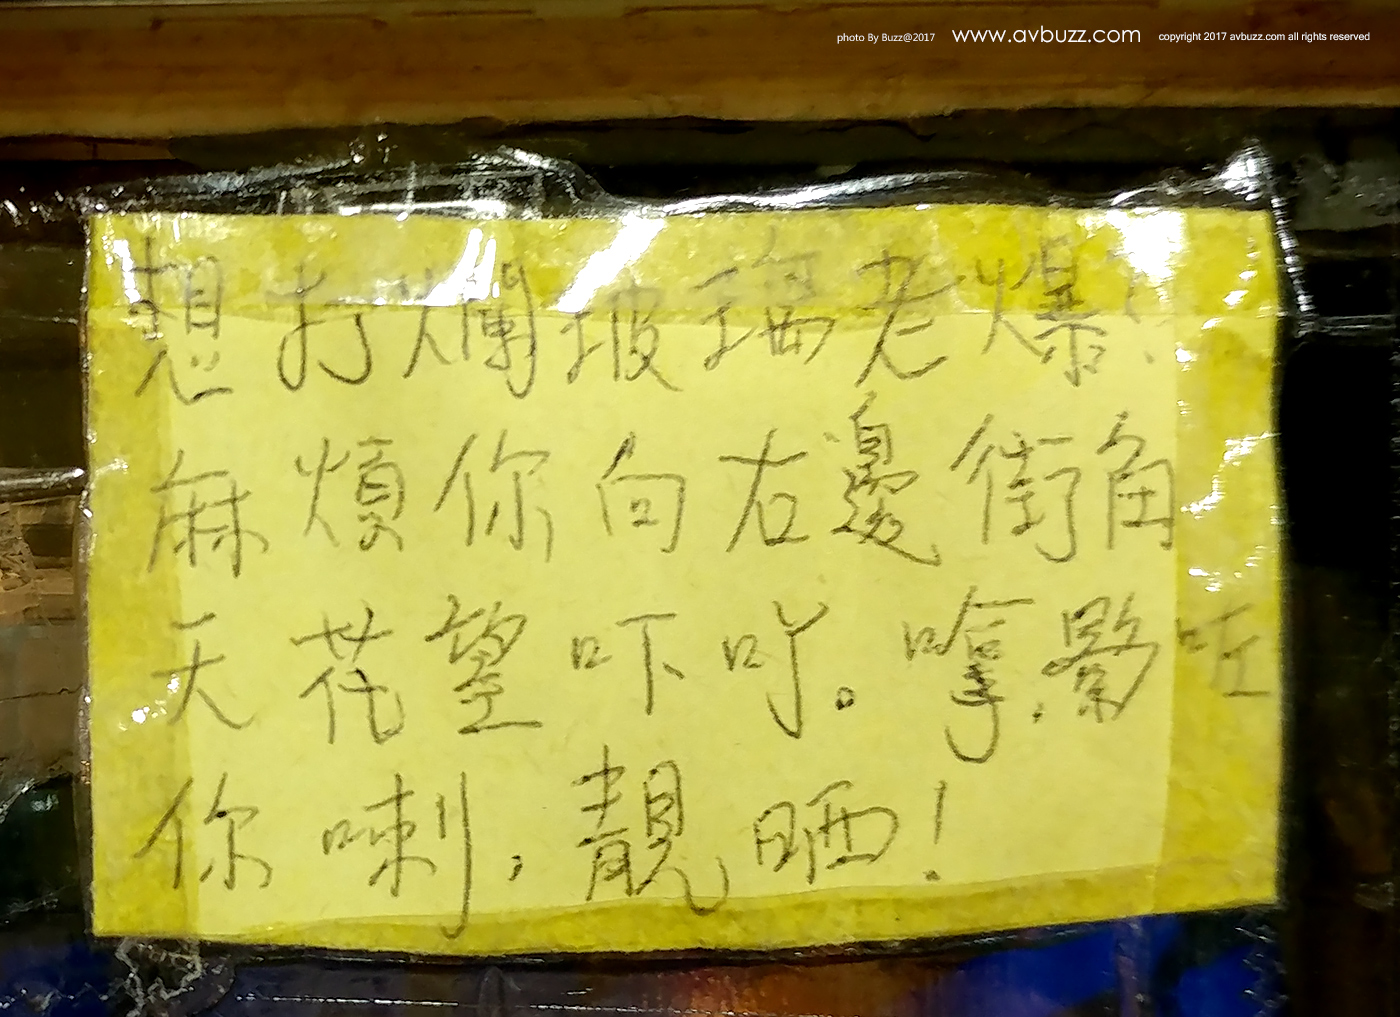 photo By Buzz@2017 www.avbuzz.com copyright 2017 avbuzz.com all rights reserved
想打爛玻璃老爆?
麻煩你向右邊街角
天花望吓吖。嗱,影咗
你喇,靚晒!